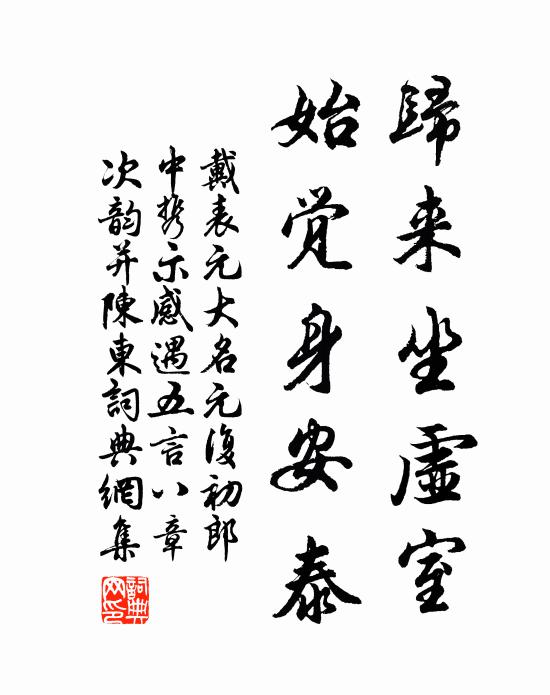 歸来坐虛室
始覚身安泰
戴表元大名元復初郎
中携示感遇五言八章
次韵并陳東詞典網集
詞典网印